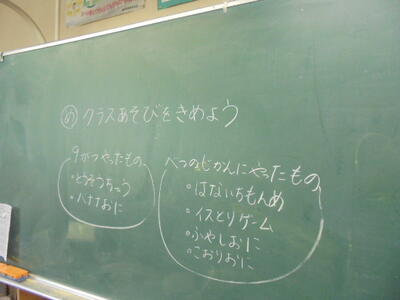 め クラスあそびをきめよう
9がつやったもの
・とうそうちゅう
・バナナおに
べつのじかんにやったもの
・はないちもんめ
・イスとりゲーム
・ふやしおに
・こおりおに